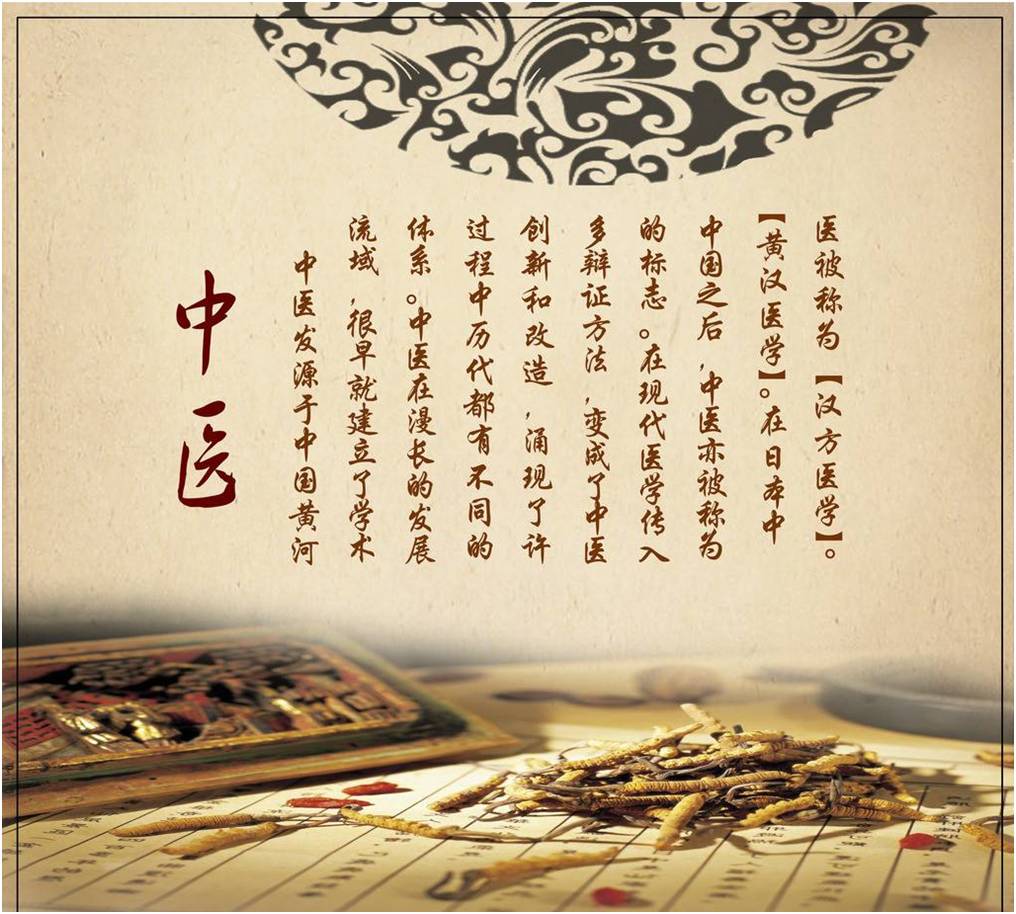 中医
中医发源于中国黄河
流域，很早就建立了学术
体系。中医在漫长的发展
过程中历代都有不同的
创新和改造，涌现了许
多辩证方法，变成了中医
的标志。在现代医学传入
中国之后，中医亦被称为
【黄汉医学】。在日本中
医被称为【汉方医学】。